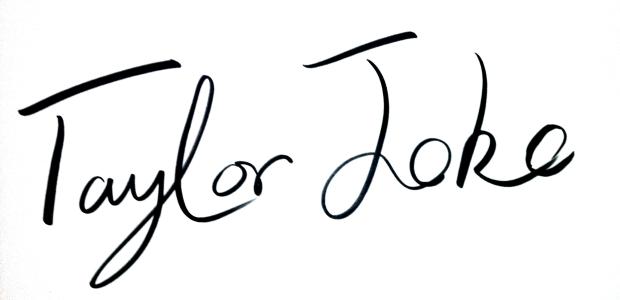 Taylor Joke